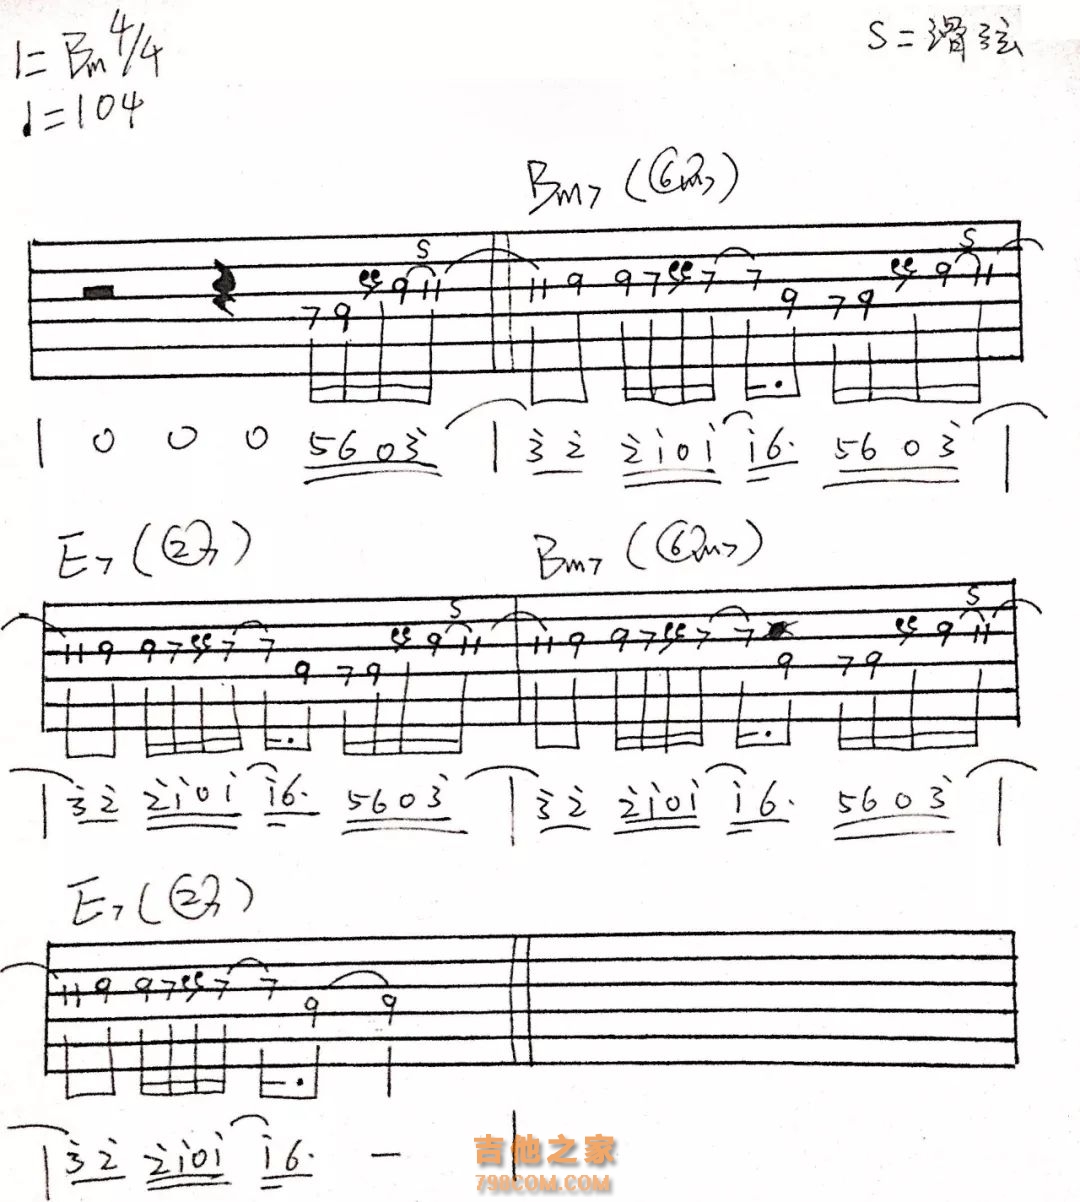 1=Bm 4/4
S=滑弦
♩=104
Bm7 (⑥m7)
S S
7 9 9 11 11 9 9 7 7 7 9 7 9 9 11
| 0 0 0 5 6 0 3̇ | 3̇ 2̇ 2̇ 1̇ 0 1̇ 1̇ 6· 5 6 0 3̇ |
E7 (②7) Bm7 (⑥m7)
S S
11 9 9 7 7 7 9 7 9 9 11 11 9 9 7 7 7 9 7 9 9 11
| 3̇ 2̇ 2̇ 1̇ 0 1̇ 1̇ 6· 5 6 0 3̇ | 3̇ 2̇ 2̇ 1̇ 0 1̇ 1̇ 6· 5 6 0 3̇ |
E7 (②7)
11 9 9 7 7 7 9 9
| 3̇ 2̇ 2̇ 1̇ 0 1̇ 1̇ 6· — |
吉他之家
798COM.COM